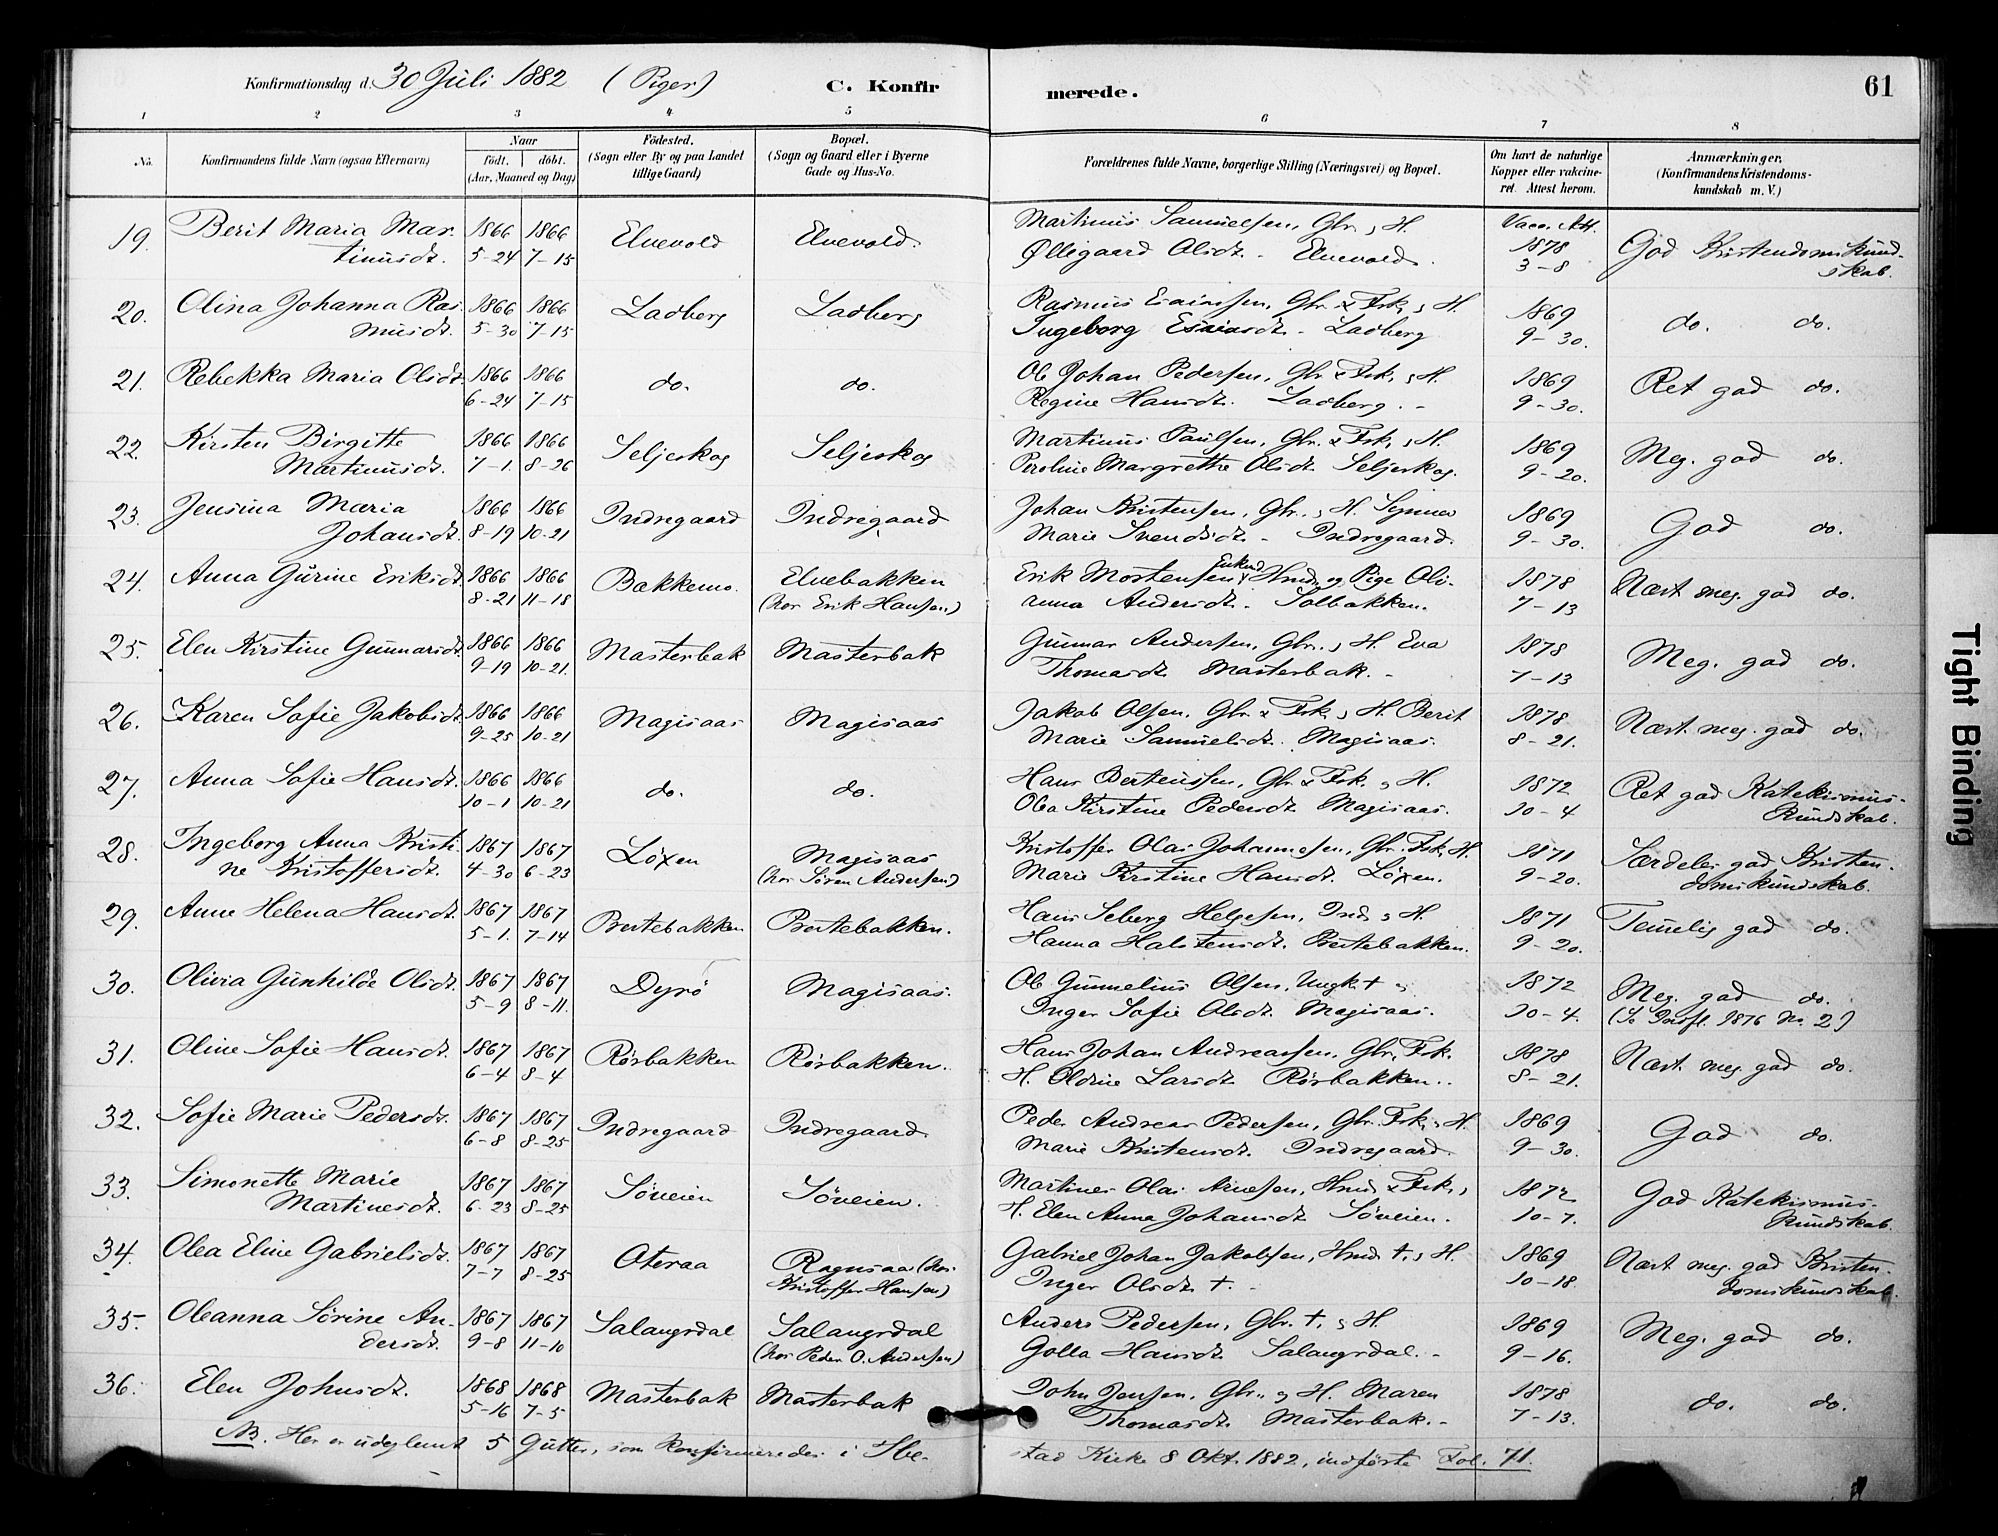 Konfirmationsdag d. 30 Juli 1882 (Piger) C. Konfirmerede. 61
1 2 3 4 5 6 7 8
No. Konfirmandens fulde Navn (ogsaa Efternavn) Naar födt. döbt. (Aar, Maaned og Dag) Födested. (Sogn eller By og paa Landet tillige Gaard) Bopæl. (Sogn og Gaard eller i Byerne Gade og Hus-No. Forældrenes fulde Navne, borgerlige Stilling (Næringsvei) og Bopæl. Om havt de naturlige Kopper eller vakcineret. Attest herom. Anmærkninger. (Konfirmandens Kristendomskundskab m. V.)
19. Berit Maria Mar- 1866 1866 Elvevold Elvevold. Martinus Samuelsen, Gbr., H. Vacc. Att. 1878 God Kristendomskund-
tinusdt. 5-24 7-15 Øllegaard Olsdt. Elvevold. 3-8 skab.
20. Olina Johanna Ras- 1866 1866 Ladberg Ladberg Rasmus Esaiassen, Gbr. & Fsk., H. 1869 do. do.
musdt. 5-30 7-15 Ingeborg Esaiasdt. Ladberg 9-30.
21. Rebekka Maria Olsdt. 1866 1866 do. do. Ole Johan Pedersen, Gbr. & Fsk., H. 1869 Ret god do.
6-24 7-15 Regine Hansdt. Ladberg. 9-30.
22. Kirsten Birgitte 1866 1866 Seljeskog Seljeskog Martinus Paulsen, Gbr. & Fsk., H. 1869 Meg. god do.
Martinusdt. 7-1. 8-26 Peroline Margrethe Olsdt. Seljeskog. 9-20.
23. Jensina Maria 1866 1866 Indregaard Indregaard Johan Kristensen, Gbr., H. Synnøv 1869 God do.
Johansdt. 8-19 10-21 Marie Svendsdt. Indregaard. 9-30.
24. Anna Gurine Eriksdt. 1866 1866 Bakkemo. Elvebakken Erik Mortensen, Enkmd & Hmd. og Pige Oli- 1878 Næst. meg. god do.
8-21 11-18 (hos Erik Hansen) anna Andersdt. Solbakken. 7-13
25. Elen Kirstine Gunnarsdt. 1866 1866 Masterbak Masterbak Gunnar Andersen, Gbr., H. Eva 1878 Meg. god do.
9-19 10-21. Thomasdt. Masterbak. 7-13
26. Karen Sofie Jakobsdt. 1866 1866 Magisaas Magisaas Jakob Olsen, Gbr. & Fsk., H. Berit 1878 Næst. meg. god do.
9-25 10-21 Marie Samuelsdt. Magisaas. 8-21.
27. Anna Sofie Hansdt. 1866 1866 do. do. Hans Berteussen, Gbr. & Fsk., H. 1872 Ret god Katekismus-
10-1 10-21 Olea Kirstine Pedersdt. Magisaas. 10-4 kundskab.
28. Ingeborg Anna Kristi- 1867 1867 Løxen Magisaas Kristoffer Olai Johannesen, Gbr. Fsk. H. 1871 Særdeles god Kristen-
ne Kristoffersdt. 4-30 6-23 (hos Søren Andersen) Marie Kirstine Hansdt. Løxen. 9-20. domskundskab.
29. Anne Helena Hansdt. 1867 1867 Bertebakken Bertebakken. Hans Seberg Helgesen, Ind., H. 1871 Temelig god do.
5-1. 7-14 Hanna Halstensdt. Bertebakken. 9-20.
30. Olivia Gunhilde Olsdt. 1867 1867 Dyrö Magisaas. Ole Gunnelius Olsen, Ungk. † og 1872 Meg. god do.
5-9 8-11. Inger Sofie Olsdt. Magisaas. 10-4. (Se Indfl. 1876 No. 2)
31. Oline Sofie Hansdt. 1867 1867 Rørbakken Rørbakken. Hans Johan Andreassen, Gbr. Fsk. 1878 Næst. meg. god do.
6-4 8-4 H. Oldine Larsdt. Rørbakken. 8-21.
32. Sofie Marie Pedersdt. 1867 1867 Indregaard Indregaard. Peder Andreas Pedersen, Gbr. Fsk., H. 1869 God do.
6-8 8-25 Marie Kristensdt. Indregaard. 9-30.
33. Simonette Marie 1867 1867 Søveien Søveien. Martines Olai Arnesen, Hmd. & Fsk., 1872 God Katekismus-
Martinesdt. 6-23 8-25 H. Elen Anna Johansdt. Søveien. 10-7. kundskab.
34. Olea Eline Gabrielsdt. 1867 1867 Oteraa Ragnsaa (hos Gabriel Johan Jakobsen, Hmd. †, H. 1869 Næst. meg. god Kristen-
7-7 8-25 Kristoffer Hansen) Inger Olsdt. †. 10-18. domskundskab.
35. Oleanna Sörine An- 1867 1867 Salangsdal Salangsdal Anders Pedersen, Gbr. †, H. 1869 Meg. god do.
dersdt. 9-8 11-10 (hos Peder O. Andersen) Golla Hansdt. Salangsdal. 9-16.
36. Elen Johnsdt. 1868 1868 Masterbak Masterbak John Jensen, Gbr., og H. Maren 1878 do. do.
5-16 7-5 Thomasdt. Masterbak. 7-13.
NB. Her er udeglemt 5 Gutter, som konfirmeredes i Ibe- stad Kirke 8 Okt. 1882, indførte Fol. 71.
Tight Binding